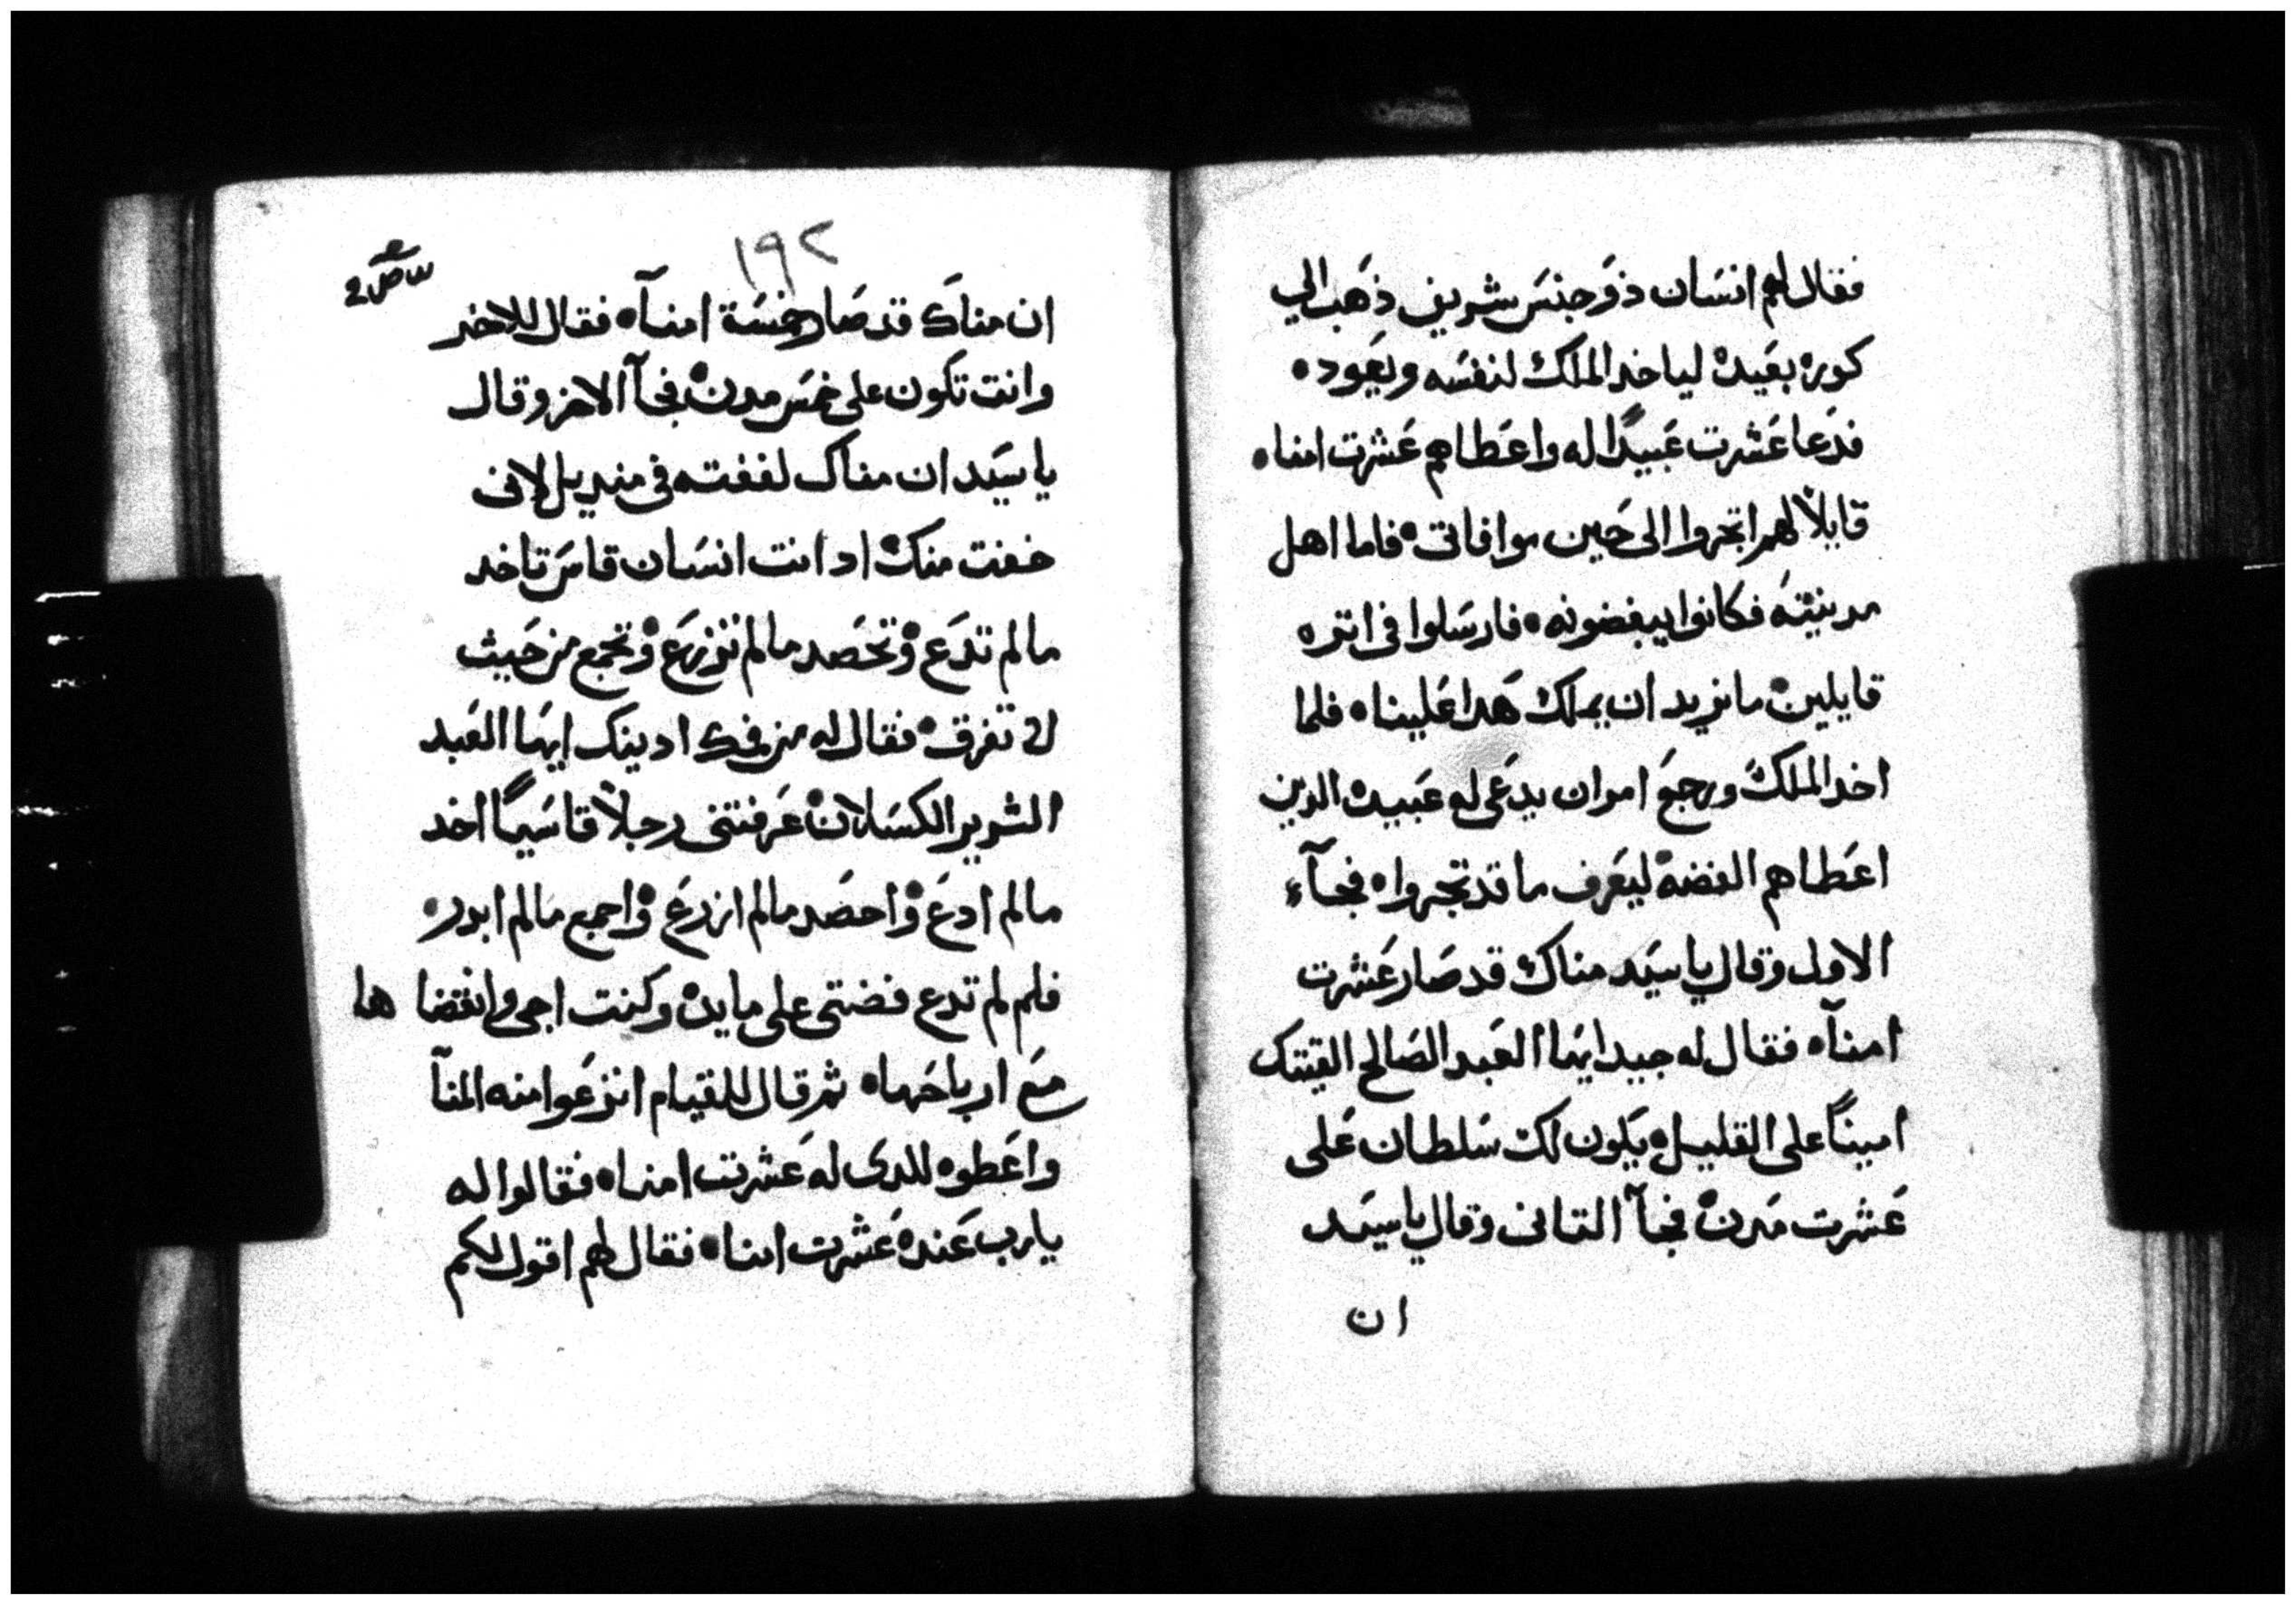 فقال لهم انسَان ذو جنسَ شريف ذهَب الي
كوره بعَيده لياخد الملك لنفسَه ويعَوده
فدَعا عَشرت عَبيدًا له واعَطاهم عَشرت امناه
قايلاً لهم اتجروا الى حَين موافاتى فاما اهل
مدينته فكانوا يبغضونه فارسَلوا فى اتره
قايلين ما نريد ان يملك هَدا عَلينا فلما
اخد الملك ورجعَ امر ان يدعَى له عَبيده الدين
اعَطاهم الفضه ليعَرف ما قد تجروا فجآء
الاول وقال يا سيَد مناك قد صَار عَشرت
امنآه فقال له جيد ايهَا العَبد الصَالح القيتك
امينًا على القليل يكَون لك سَلطان عَلى
عَشرت مَدن فجآ التانى وقال يا سيَد
ان
١٩٢
ان مناك قد صَار خمسَة امنآه فقال للاخر
وانت تكَون على خمسَ مدن فجآ الاخر وقال
يا سيَد ان مناك لففته فى منديل لانى
خفت منك اد انت انسَان قاسَ تاخد
مالم تدَع وتحصَد مالم تزرعَ وتجمع من حَيث
لا تفرق فقال له من فمك ادينك ايهَا العَبد
الشرير الكسَلان عَرفتنى رجلاً قاسَيًا اخد
مالم ادعَ واحصَد مالم ازرعَ واجمع مالم ابدر
فلم لم تدع فضتى على مايده وكنت اجى وانقضاها
معَ ارباحَها ثم قال للقيام انزعَوا منه المنآ
واعَطوه للدى له عَشرت امناه فقالوا له
يارب عَنده عَشرت امناه فقال لهم اقول لكم